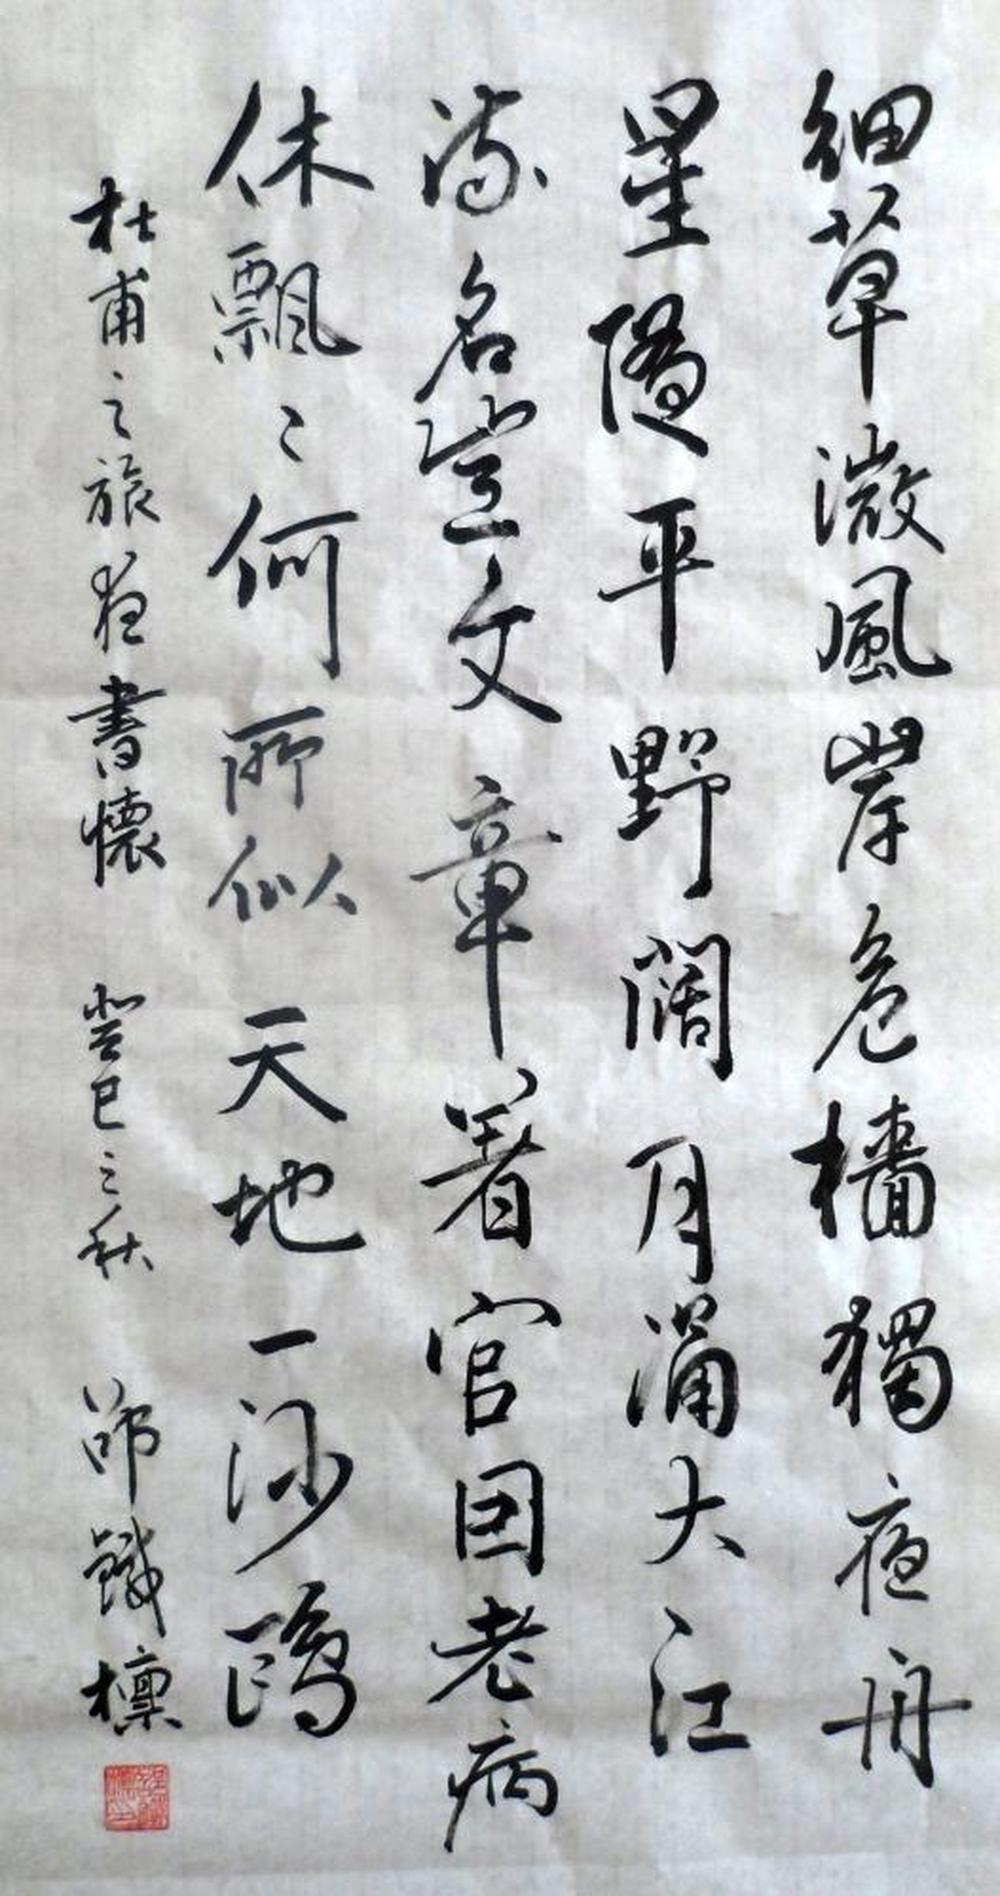 細草微風岸危檣獨夜舟
星隨平野闊月涌大江
流名豈文章著官因老病
休飄〻何所似天地一沙鷗
杜甫之旅夜書懷 癸巳之秋 鐵檁